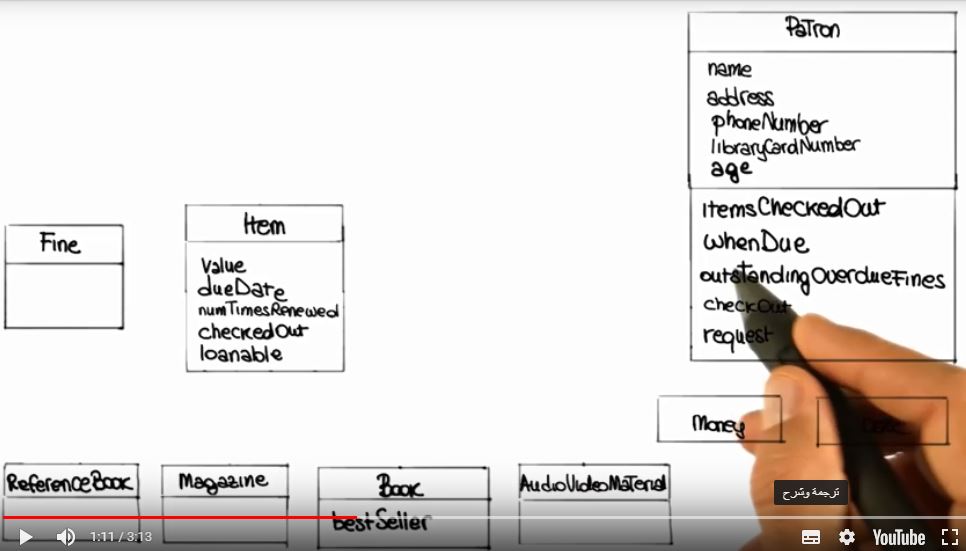 Patron
name
address
phoneNumber
libraryCardNumber
age
itemsCheckedOut
whenDue
outstandingOverdueFines
checkOut
request
Fine
Item
value
dueDate
numTimesRenewed
checkedOut
loanable
Money
Date
ReferenceBook
Magazine
Book
bestSeller
AudioVideoMaterial
ترجمة وشرح
1:11 / 3:13
YouTube